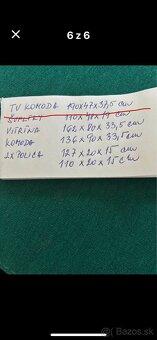 6 z 6
TV KOMODA 190x47x37,5 cm
110x48x77 cm
VITRÍNA 162x80x33,5 cm
KOMODA 136x90x33,5 cm
2x POLICA 127x20x15 cm
110x20x15 cm
Bazoš.sk